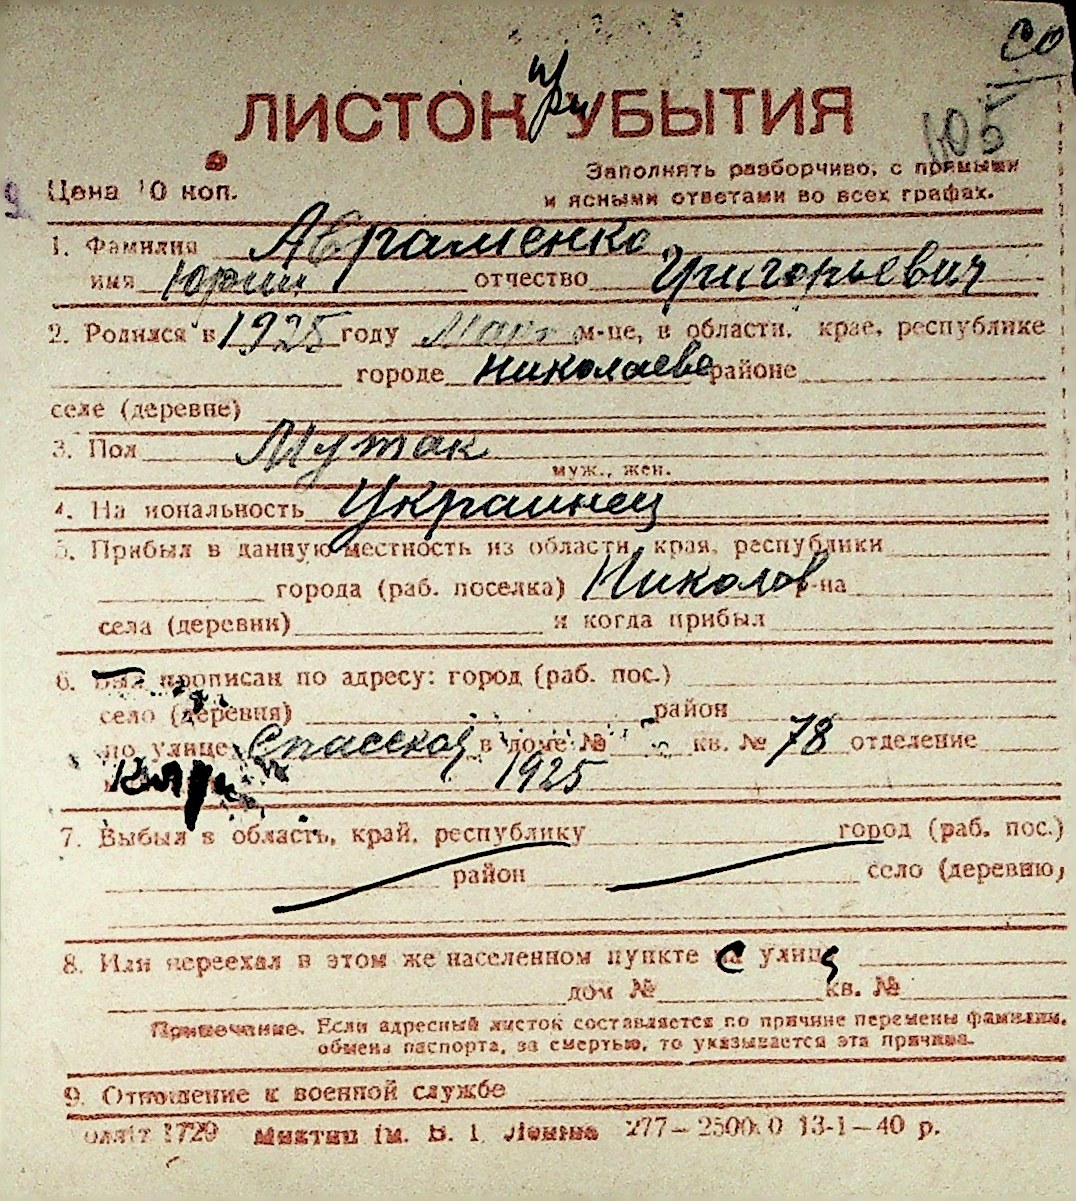 СО
105
ЛИСТОК при УБЫТИЯ
Цена 10 коп.
Заполнять разборчиво, с прямыми
и ясными ответами во всех графах.
1. Фамилия Авраменко
имя Юрий отчество Григорьевич
2. Родился в 1925 году Март м-це, в области, крае, республике
городе Николаеве районе
селе (деревне)
3. Пол Мужак
муж., жен.
4. На иональность Украинец
5. Прибыл в данную местность из области, края, республики
города (раб. поселка) Николов р-на
села (деревни) и когда прибыл
6. Был прописан по адресу: город (раб. пос.)
село (деревня) район
по улице Спасской в доме № кв. № 78 отделение
1925
7. Выбыл в область, край, республику город (раб. пос.)
район село (деревню,
8. Или переехал в этом же населенном пункте с улицы
дом № кв. №
Примечание. Если адресный листок составляется по причине перемены фамилии,
обмена паспорта, за смертью, то указывается эта причина.
9. Отношение к военной службе
1729 ім. В. І. Леніна 277— 13-1—40 р.